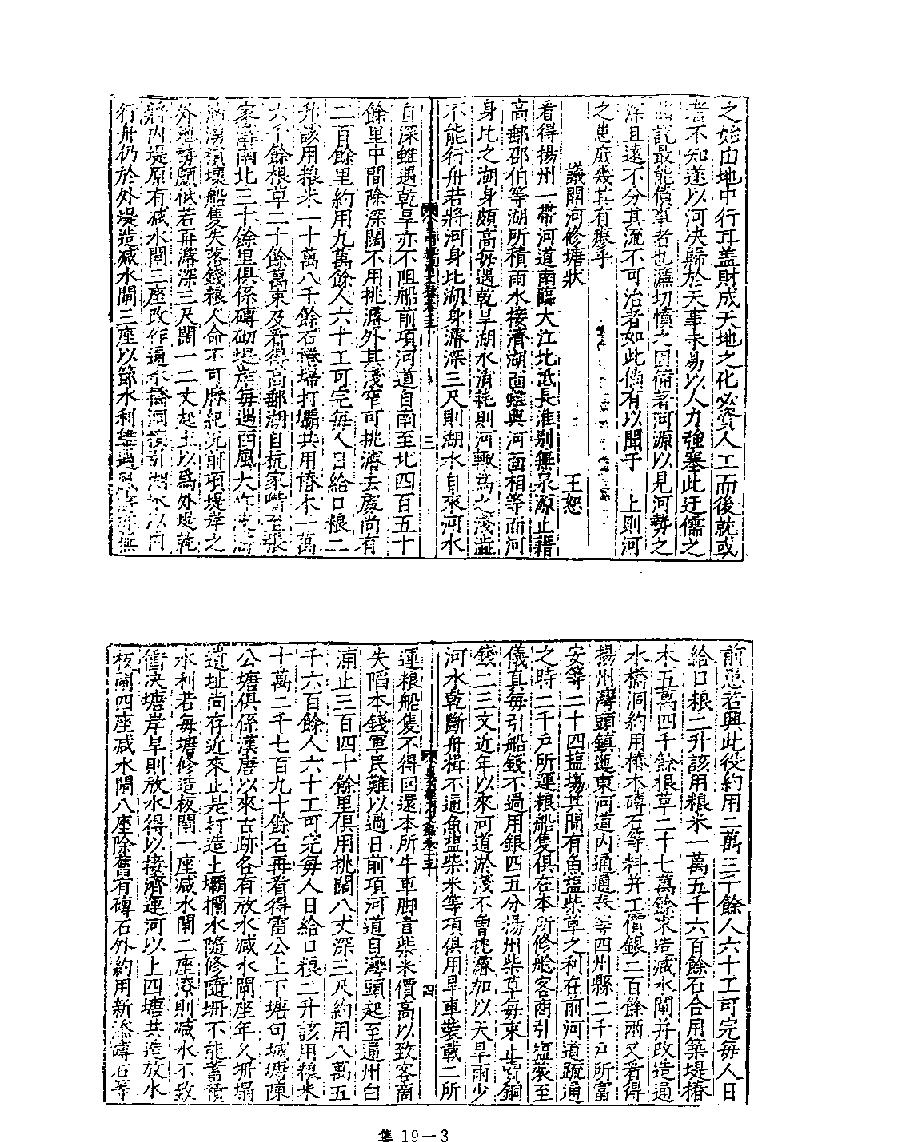 之始由地中行耳盖財成天地之化必資人工而後就或
者不知遂以河决歸於天事未易以人力強塞此迂儒之
說最能僨事者也濂切憤之因備著河源以見河勢之
深且遠不分其流不可治者如此倘有以聞于 上則河
之患庶幾其有瘳乎
議開河修塘狀 王恕
看得揚州一帶河道南臨大江北抵長淮別無泉源止藉
高郵邵伯等湖所積雨水接濟湖面雖與河面相等而河
身比之湖身頗高每遇乾旱湖水消耗則河輒為之淺澁
不能行舟若將河身比湖身濬深三尺則湖水自來河水
自深雖遇乾旱亦不阻船前項河道自南至北四百五十
餘里中間除深闊不用挑濬外其淺窄可挑濬去處尚有
二百餘里約用九萬餘人六十工可完每人日給口粮二
升該用粮米一十萬八千餘石捲埽打壩共用樁木一萬
六千餘根草二十餘萬束及看得高郵湖自杭家嘴至張
家 南北三十餘里俱係磚砌堤岸每遇西風大作
損壞船隻失落錢粮人命不可勝紀况前項堤岸之
外地 頗低若再濬深三尺闊一二丈起土以為外堤就
將內堤原有減水閘三座改作通水橋洞 引湖水 內
行舟仍於外堤造減水閘三座以節水利 無
前患若興此役約用二萬三千餘人六十工可完每人日
給口粮二升該用粮米一萬五千六百餘石合用築堤樁
木五萬四千餘根草二十七萬餘束造减水閘并改造通
水橋洞約用樁木磚石等料并工價銀二百餘兩又看得
揚州灣頭鎮迤東河道內通通泰等四州縣二千户所富
安等二十四塩場其間有魚塩柴草之利在前河道疏通
之時二千戶所運粮船隻俱在本所修艌客商引塩裝至
儀真每引船錢不過用銀四五分揚州柴草每束止賣銅
錢二三文近年以來河道淤淺不曾挑濬加以天旱雨少
河水乾斷舟楫不通魚塩柴米等項俱用旱車裝載二所
運粮船隻不得回還本所牛車脚 柴米價高以致客商
失陷本錢軍民難以過日前項河道自灣頭起至通州白
蒲止三百四十餘里俱用挑闊八丈深三尺約用八萬五
千六百餘人六十工可完每人日給口粮二升該用粮米
十萬二千七百九十餘石再看得雷公上下塘句城塘陳
公塘俱係漢唐以來古跡各有放水减水閘座年久坍塌
遺址尚存近來止是打造土壩攔水隨修隨坍不能蓄積
水利若每塘修造板閘一座减水閘二座潦則减水不致
衝决塘岸旱則放水得以接濟運河以上四塘共造放水
板閘四座减水閘八座除舊有磚石外約用新添磚石等
集 19－3